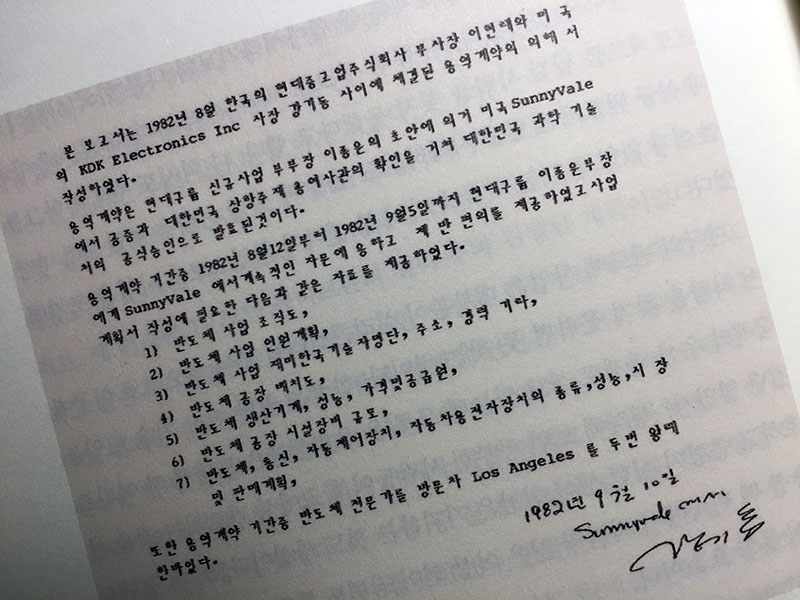 본 보고서는 1982년 8월 한국의 현대중고업주식회사 부사장 이현태와 미 국
의 KDK Electronics Inc 사장 강기동 사이에 체결된 용역계약의 의해 서
작성하였다.
용역계약은 현대구룹 신규사업 부부장 이종은의 초안에 의거 미국SunnyVale
에서 공증과 대한민국 상항주재 총여사관의 확인을 거쳐 대한민국 과학 기술
처의 공식승인으로 발효된것이다.
용역계약 기간중 1982년 8월12일부터 1982년 9월5일까지 현대구룹 이종은부장
에게 SunnyVale 에서계속적인 자문에 응하고 제 반 편의를 제공하였고사업
계획서 작성에 필요한 다음과 같은 자료를 제공하였다.
1) 반도체 사업 조직도,
2) 반도체 사업 인원계획,
3) 반도체 사업 재미한국기술자명단, 주소, 경력 기타,
4) 반도체 공장 배치도,
5) 반도체 생산기계, 성능, 가격및공급원,
6) 반도체 공장 시설장비 규모,
7) 반도체, 통신, 자동제어장치, 자동차용전자장치의 종류,성능,시 장
및 판매계획,
또한 용역계약 기간중 반도체 전문가를 방문차 Los Angeles 를 두번 왕래
한바있다.
1982년 9월 10일
Sunnyvale 에서
강기동